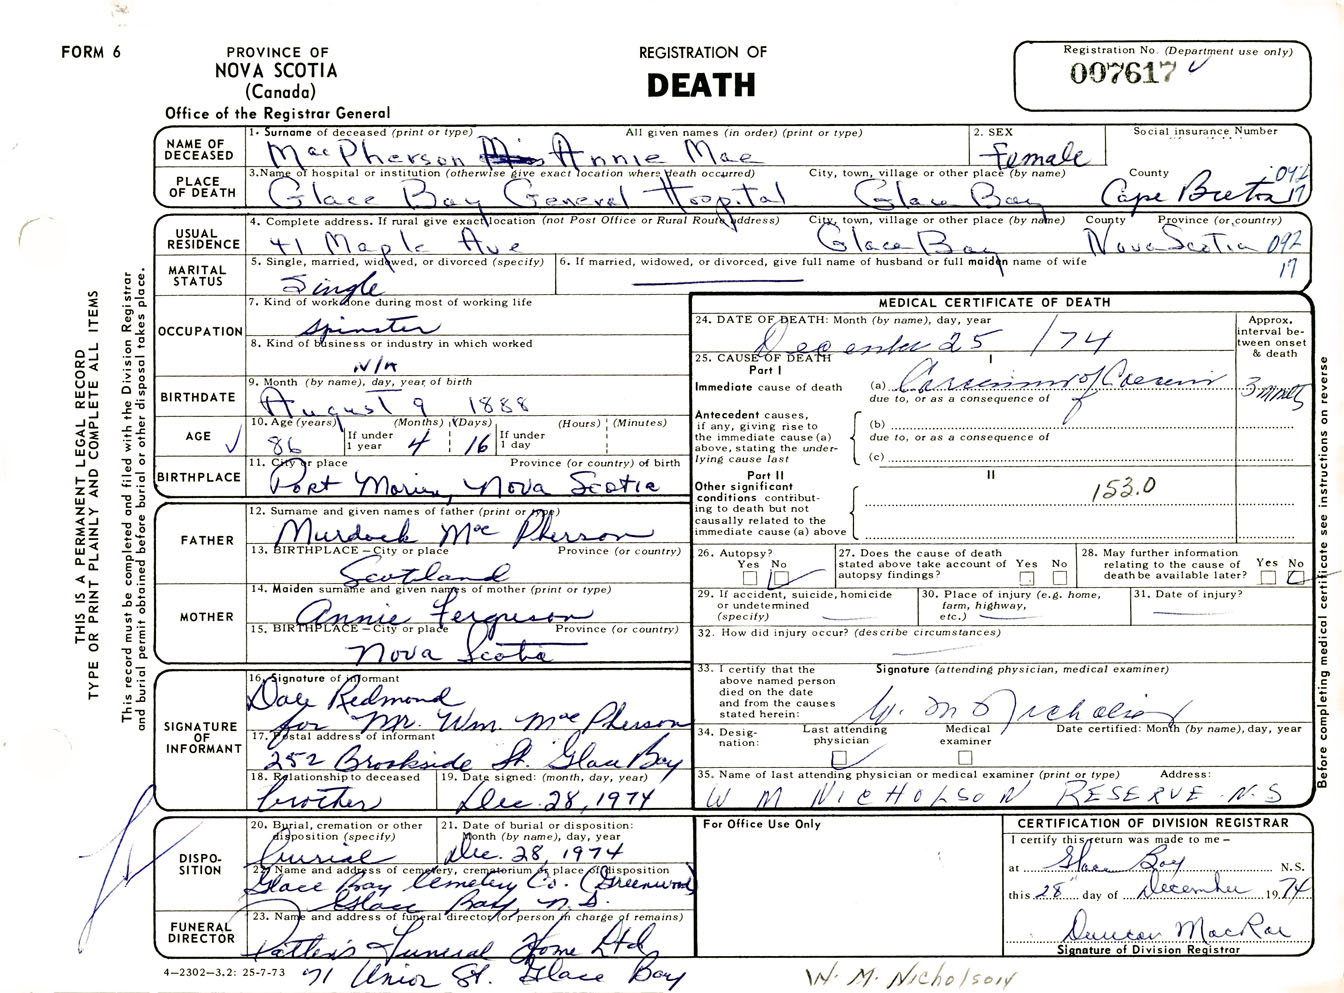 FORM 6
PROVINCE OF
NOVA SCOTIA
(Canada)
Office of the Registrar General
REGISTRATION OF
DEATH
Registration No. (Department use only)
007617
THIS IS A PERMANENT LEGAL RECORD
TYPE OR PRINT PLAINLY AND COMPLETE ALL ITEMS
This record must be completed and filed with the Division Registrar
and burial permit obtained before burial or other disposal takes place.
NAME OF DECEASED
1. Surname of deceased (print or type) All given names (in order) (print or type)
MacPherson Annie Mae
2. SEX
Female
Social insurance Number
PLACE OF DEATH
3. Name of hospital or institution (otherwise give exact location where death occurred) City, town, village or other place (by name) County
Glace Bay General Hospital Glace Bay Cape Breton 092 17
USUAL RESIDENCE
4. Complete address. If rural give exact location (not Post Office or Rural Route address) City, town, village or other place (by name) County Province (or country)
41 Maple Ave Glace Bay Nova Scotia 092
17
MARITAL STATUS
5. Single, married, widowed, or divorced (specify)
Single
6. If married, widowed, or divorced, give full name of husband or full maiden name of wife
OCCUPATION
7. Kind of work done during most of working life
Spinster
8. Kind of business or industry in which worked
N/A
BIRTHDATE
9. Month (by name), day, year of birth
August 9 1888
AGE
10. Age (years) (Months) (Days) (Hours) (Minutes)
86 If under 1 year 4 16 If under 1 day
BIRTHPLACE
11. City or place Province (or country) of birth
Port Morien, Nova Scotia
FATHER
12. Surname and given names of father (print or type)
Murdock MacPherson
13. BIRTHPLACE – City or place Province (or country)
Scotland
MOTHER
14. Maiden surname and given names of mother (print or type)
Annie Ferguson
15. BIRTHPLACE – City or place Province (or country)
Nova Scotia
SIGNATURE OF INFORMANT
16. Signature of informant
Dale Redmond
for Mr. Wm. MacPherson
17. Postal address of informant
252 Brookside St. Glace Bay
18. Relationship to deceased
brother
19. Date signed: (month, day, year)
Dec. 28, 1974
DISPOSITION
20. Burial, cremation or other disposition (specify)
burial
21. Date of burial or disposition: Month (by name), day, year
Dec. 28, 1974
22. Name and address of cemetery, crematorium or place of disposition
Glace Bay Cemetery Co. (Greenwood)
Glace Bay, N.S.
FUNERAL DIRECTOR
23. Name and address of funeral director (or person in charge of remains)
Patten's Funeral Home Ltd.
71 Union St. Glace Bay
4–2302–3.2: 25-7-73
MEDICAL CERTIFICATE OF DEATH
24. DATE OF DEATH: Month (by name), day, year
December 25 /74
Approx. interval between onset & death
25. CAUSE OF DEATH
Part I
I
Immediate cause of death
(a) Carcinoma of Caecum 3 months
due to, or as a consequence of
Antecedent causes, if any, giving rise to the immediate cause (a) above, stating the underlying cause last
(b)
due to, or as a consequence of
(c)
Part II
II
Other significant conditions contributing to death but not causally related to the immediate cause (a) above
153.0
26. Autopsy?
Yes No
27. Does the cause of death stated above take account of autopsy findings?
Yes No
28. May further information relating to the cause of death be available later?
Yes No
29. If accident, suicide, homicide or undetermined (specify)
30. Place of injury (e.g. home, farm, highway, etc.)
31. Date of injury?
32. How did injury occur? (describe circumstances)
33. I certify that the above named person died on the date and from the causes stated herein:
Signature (attending physician, medical examiner)
W. M. Nicholson
34. Designation:
Last attending physician
Medical examiner
Date certified: Month (by name), day, year
35. Name of last attending physician or medical examiner (print or type) Address:
W M NICHOLSON RESERVE N.S
Before completing medical certificate see instructions on reverse
For Office Use Only
CERTIFICATION OF DIVISION REGISTRAR
I certify this return was made to me –
at Glace Bay N.S.
this 28 day of December 1974
Duncan MacRae
Signature of Division Registrar
W. M. Nicholson